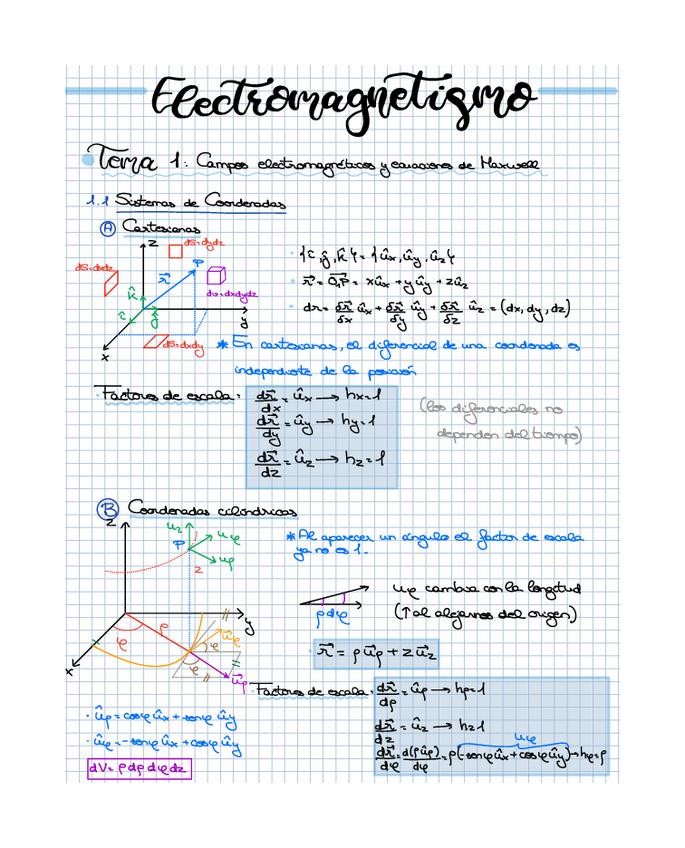 Electromagnetismo
Tema 1: Campos electromagnéticos y ecuaciones de Maxwell
1.1 Sistemas de Coordenadas
A Cartesianas
z
dS=dydz
P
dS=dxdz
r⃗
dv=dxdydz
k̂
î
ĵ
y
x
dS=dxdy
· {î, ĵ, k̂} = {ûx, ûy, ûz}
· r⃗ = OP = xûx + yûy + zûz
· dr = δr⃗/δx ûx + δr⃗/δy ûy + δr⃗/δz ûz = (dx, dy, dz)
* En cartesianas, el diferencial de una coordenada es
independiente de la posición
· Factores de escala:
dr⃗/dx = ûx → hx=1
dr⃗/dy = ûy → hy=1
dr⃗/dz = ûz → hz=1
(los diferenciales no
dependen del tiempo)
B Coordenadas cilíndricas
z
uz
uφ
P
uρ
z
* Al aparecer un ángulo el factor de escala
ya no es 1.
ρdφ
uφ cambia con la longitud
(↑ al alejarnos del origen)
φ
ρ
y
x
ûφ
φ
φ
u⃗ρ
· r⃗ = ρu⃗ρ + zu⃗z
· Factores de escala:
dr⃗/dρ = ûρ → hρ=1
dr⃗/dz = ûz → hz1
dr⃗/dφ = d(ρûρ)/dφ = ρ(-senφûx + cosφûy) → hφ=ρ
uφ
· ûρ = cosφ ûx + senφ ûy
· ûφ = -senφ ûx + cosφ ûy
dV = ρ dρ dφ dz